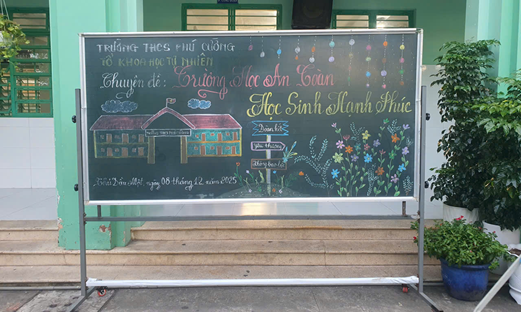 TRƯỜNG THCS PHÚ CƯỜNG
TỔ KHOA HỌC TỰ NHIÊN
Chuyên đề: Trường Học An Toàn
Học Sinh Hạnh Phúc
Đoàn kết
Yêu thương
Thủ Dầu Một, ngày 08 tháng 12 năm 2025